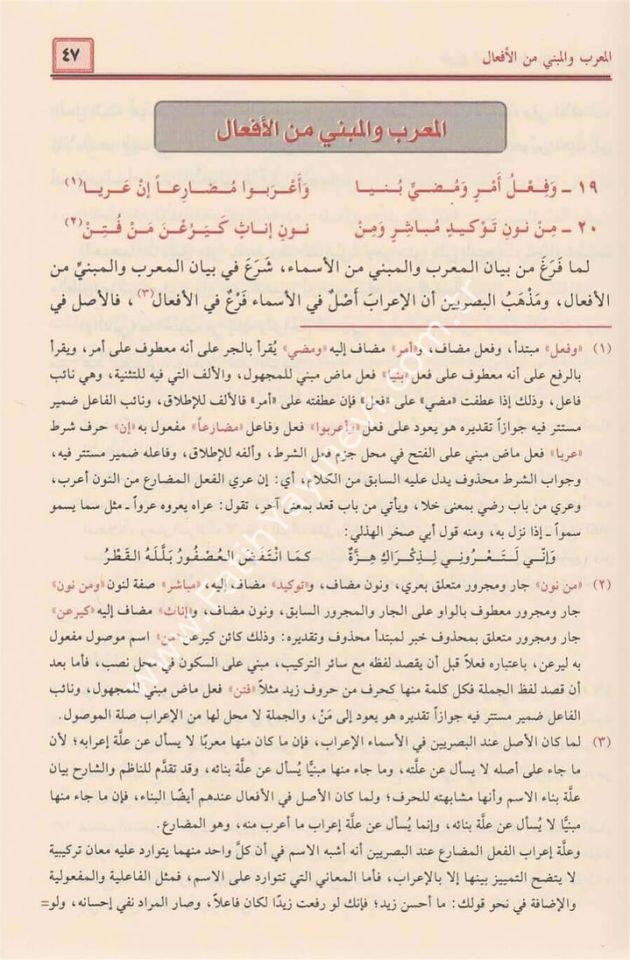 المعرب والمبني من الأفعال
٤٧
المعرب والمبني من الأفعال
١٩ ـ وَفِعْلُ أَمْرٍ وَمُضِيٍّ بُنيا وَأَعْرَبوا مُضَارِعاً إنْ عَرِيا(١)
٢٠ ـ مِنْ نونِ تَوْكيدٍ مُباشِرٍ وَمِنْ نونِ إناثٍ كَيَرُعْنَ مَنْ فُتِنْ(٢)
لما فَرَغَ من بيان المعرب والمبني من الأسماء، شَرَعَ في بيان المعرب والمبنيّ من
الأفعال، ومَذْهَبُ البصريين أن الإعرابَ أصْلٌ في الأسماء فَرْعٌ في الأفعال(٣)، فالأصل في
(١) «وفعل» مبتدأ، وفعل مضاف، و«أمر» مضاف إليه «ومضي» يُقرأ بالجر على أنه معطوف على أمر، ويقرأ
بالرفع على أنه معطوف على فعل «بنيا» فعل ماض مبني للمجهول، والألف التي فيه للتثنية، وهي نائب
فاعل، وذلك إذا عطفت «مضي» على «فعل» فإن عطفته على «أمر» فالألف للإطلاق، ونائب الفاعل ضمير
مستتر فيه جوازاً تقديره هو يعود على فعل «وأعربوا» فعل وفاعل «مضارعاً» مفعول به «إن» حرف شرط
«عريا» فعل ماض مبني على الفتح في محل جزم فعل الشرط، وألفه للإطلاق، وفاعله ضمير مستتر فيه،
وجواب الشرط محذوف يدل عليه السابق من الكلام، أي: إن عري الفعل المضارع من النون أعرب،
وعري من باب رضي بمعنى خلا، ويأتي من باب قعد بمعنى آخر، تقول: عراه يعروه عرواً ـ مثل سما يسمو
سمواً ـ إذا نزل به، ومنه قول أبي صخر الهذلي:
وَإِنّي لَتَعْرُوني لِذِكْرَاكِ هِزَّةٌ كمَا انْتَفَضَ العُصْفُورُ بَلَّلَهُ القَطْرُ
(٢) «من نون» جار ومجرور متعلق بعري، ونون مضاف، و«توكيد» مضاف إليه، «مباشر» صفة لنون «ومن نون»
جار ومجرور معطوف بالواو على الجار والمجرور السابق، ونون مضاف، و«إناث» مضاف إليه «كيرعن»
جار ومجرور متعلق بمحذوف خبر لمبتدأ محذوف وتقديره: وذلك كائن كيرعن «من» اسم موصول مفعول
به ليرعن، باعتباره فعلاً قبل أن يقصد لفظه مع سائر التركيب، مبني على السكون في محل نصب، فأما بعد
أن قصد لفظ الجملة فكل كلمة منها كحرف من حروف زيد مثلاً «فتن» فعل ماض مبني للمجهول، ونائب
الفاعل ضمير مستتر فيه جوازاً تقديره هو يعود إلى مَنْ، والجملة لا محل لها من الإعراب صلة الموصول.
(٣) لما كان الأصل عند البصريين في الأسماء الإعراب، فإن ما كان منها معربًا لا يسأل عن علَّة إعرابه؛ لأن
ما جاء على أصله لا يسأل عن علَّته، وما جاء منها مبنيًّا يُسأل عن علَّة بنائه، وقد تقدَّم للناظم والشارح بيان
علَّة بناء الاسم وأنها مشابهته للحرف؛ ولما كان الأصل في الأفعال عندهم أيضًا البناء، فإن ما جاء منها
مبنيًّا لا يُسأل عن علَّة بنائه، وإنما يُسأل عن علَّة إعراب ما أعرب منه، وهو المضارع.
وعلَّة إعراب الفعل المضارع عند البصريين أنه أشبه الاسم في أن كلَّ واحد منهما يتوارد عليه معان تركيبية
لا يتضح التمييز بينها إلا بالإعراب، فأما المعاني التي تتوارد على الاسم، فمثل الفاعلية والمفعولية
والإضافة في نحو قولك: ما أحسن زيد؛ فإنك لو رفعت زيدًا لكان فاعلاً، وصار المراد نفي إحسانه، ولو=